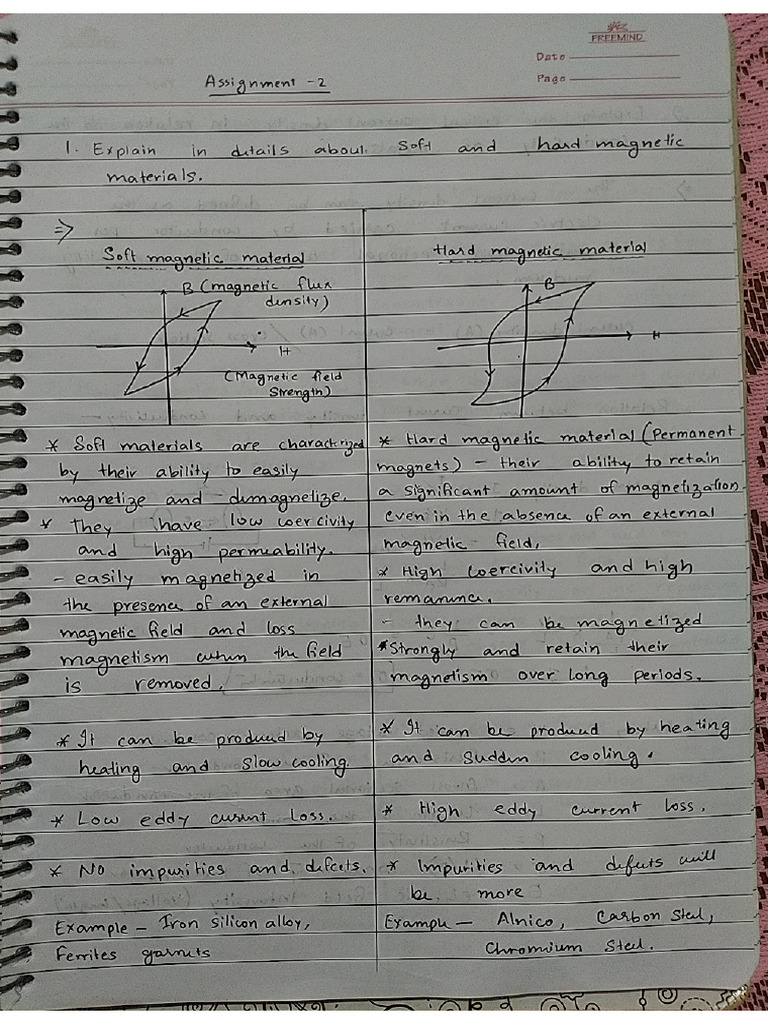 FREEMIND
Date
Page
Assignment -2
1. Explain in details about soft and hard magnetic
materials.
⇒
Soft magnetic material
B (magnetic flux
density)
H
(Magnetic field
Strength)
* Soft materials are charactrized
by their ability to easily
magnetize and dumagnetize.
* They have low coercivity
and high permeability.
- easily magnetized in
the presence of an external
magnetic field and loss
magnetism when the field
is removed.
* It can be produced by
heating and slow cooling.
* Low eddy current Loss.
* No impurities and defcets.
Example - Iron silicon alloy,
Ferrites garnets
Hard magnetic material
B
H
* Hard magnetic material (Permanent
magnets) - their ability to retain
a significant amount of magnetization
even in the absence of an external
magnetic field,
* High coercivity and high
remanance.
- they can be magnetized
* Strongly and retain their
magnetism over long periods.
* It can be produced by heating
and sudden cooling.
* High eddy current loss.
* Impurities and defects will
be more
Example - Alnico, Carbon Steel,
Chromium Steel.